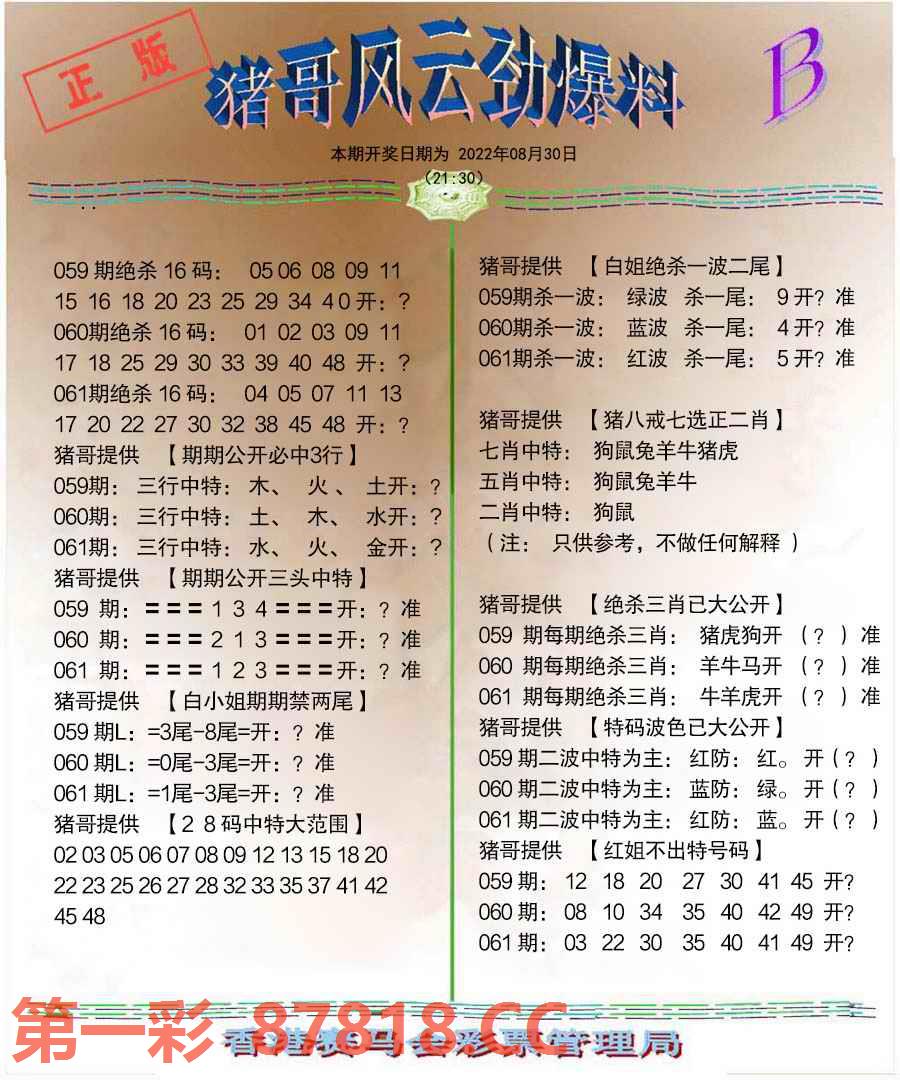 正版
猪哥风云劲爆料
B
本期开奖日期为 2022年08月30日
(21:30)
059期绝杀16码： 05 06 08 09 11
15 16 18 20 23 25 29 34 40开：?
060期绝杀16码： 01 02 03 09 11
17 18 25 29 30 33 39 40 48 开：?
061期绝杀16码： 04 05 07 11 13
17 20 22 27 30 32 38 45 48 开：?
猪哥提供 【期期公开必中3行】
059期：三行中特：木、 火、 土开：?
060期：三行中特：土、 木、 水开：?
061期：三行中特：水、 火、 金开：?
猪哥提供 【期期公开三头中特】
059 期：===134===开：? 准
060 期：===213===开：? 准
061 期：===123===开：? 准
猪哥提供 【白小姐期期禁两尾】
059期L：=3尾-8尾=开：? 准
060期L：=0尾-3尾=开：? 准
061期L：=1尾-3尾=开：? 准
猪哥提供 【28码中特大范围】
02 03 05 06 07 08 09 12 13 15 18 20
22 23 25 26 27 28 32 33 35 37 41 42
45 48
猪哥提供 【白姐绝杀一波二尾】
059期杀一波： 绿波 杀一尾： 9开? 准
060期杀一波： 蓝波 杀一尾： 4开? 准
061期杀一波： 红波 杀一尾： 5开? 准
猪哥提供 【猪八戒七选正二肖】
七肖中特： 狗鼠兔羊牛猪虎
五肖中特： 狗鼠兔羊牛
二肖中特： 狗鼠
(注： 只供参考，不做任何解释)
猪哥提供 【绝杀三肖已大公开】
059 期每期绝杀三肖： 猪虎狗开 (?)准
060 期每期绝杀三肖： 羊牛马开 (?)准
061 期每期绝杀三肖： 牛羊虎开 (?)准
猪哥提供 【特码波色已大公开】
059期二波中特为主：红防：红。开(?)
060期二波中特为主：蓝防：绿。开(?)
061期二波中特为主：红防：蓝。开(?)
猪哥提供 【红姐不出特号码】
059期： 12 18 20 27 30 41 45 开?
060期： 08 10 34 35 40 42 49 开?
061期： 03 22 30 35 40 41 49 开?
第一彩 87818.CC
香港赛马会彩票管理局